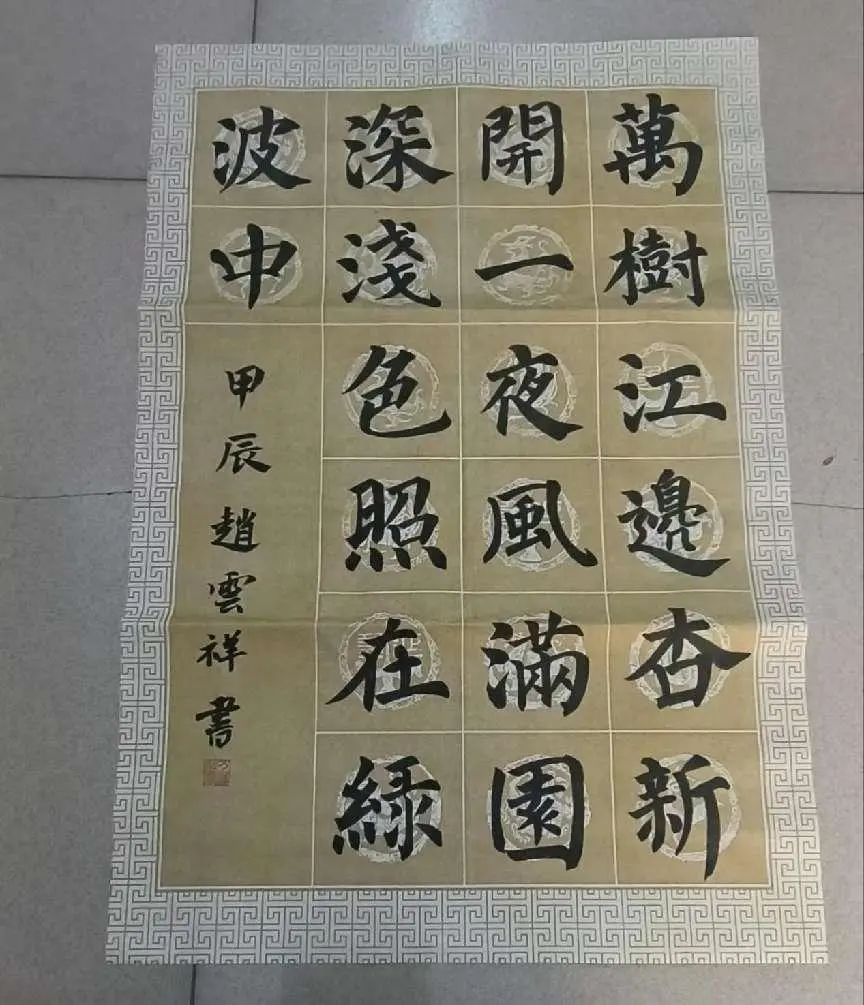 萬樹江邊杏新
開一夜風滿園
深淺色照在綠
波中
甲辰趙雲祥書